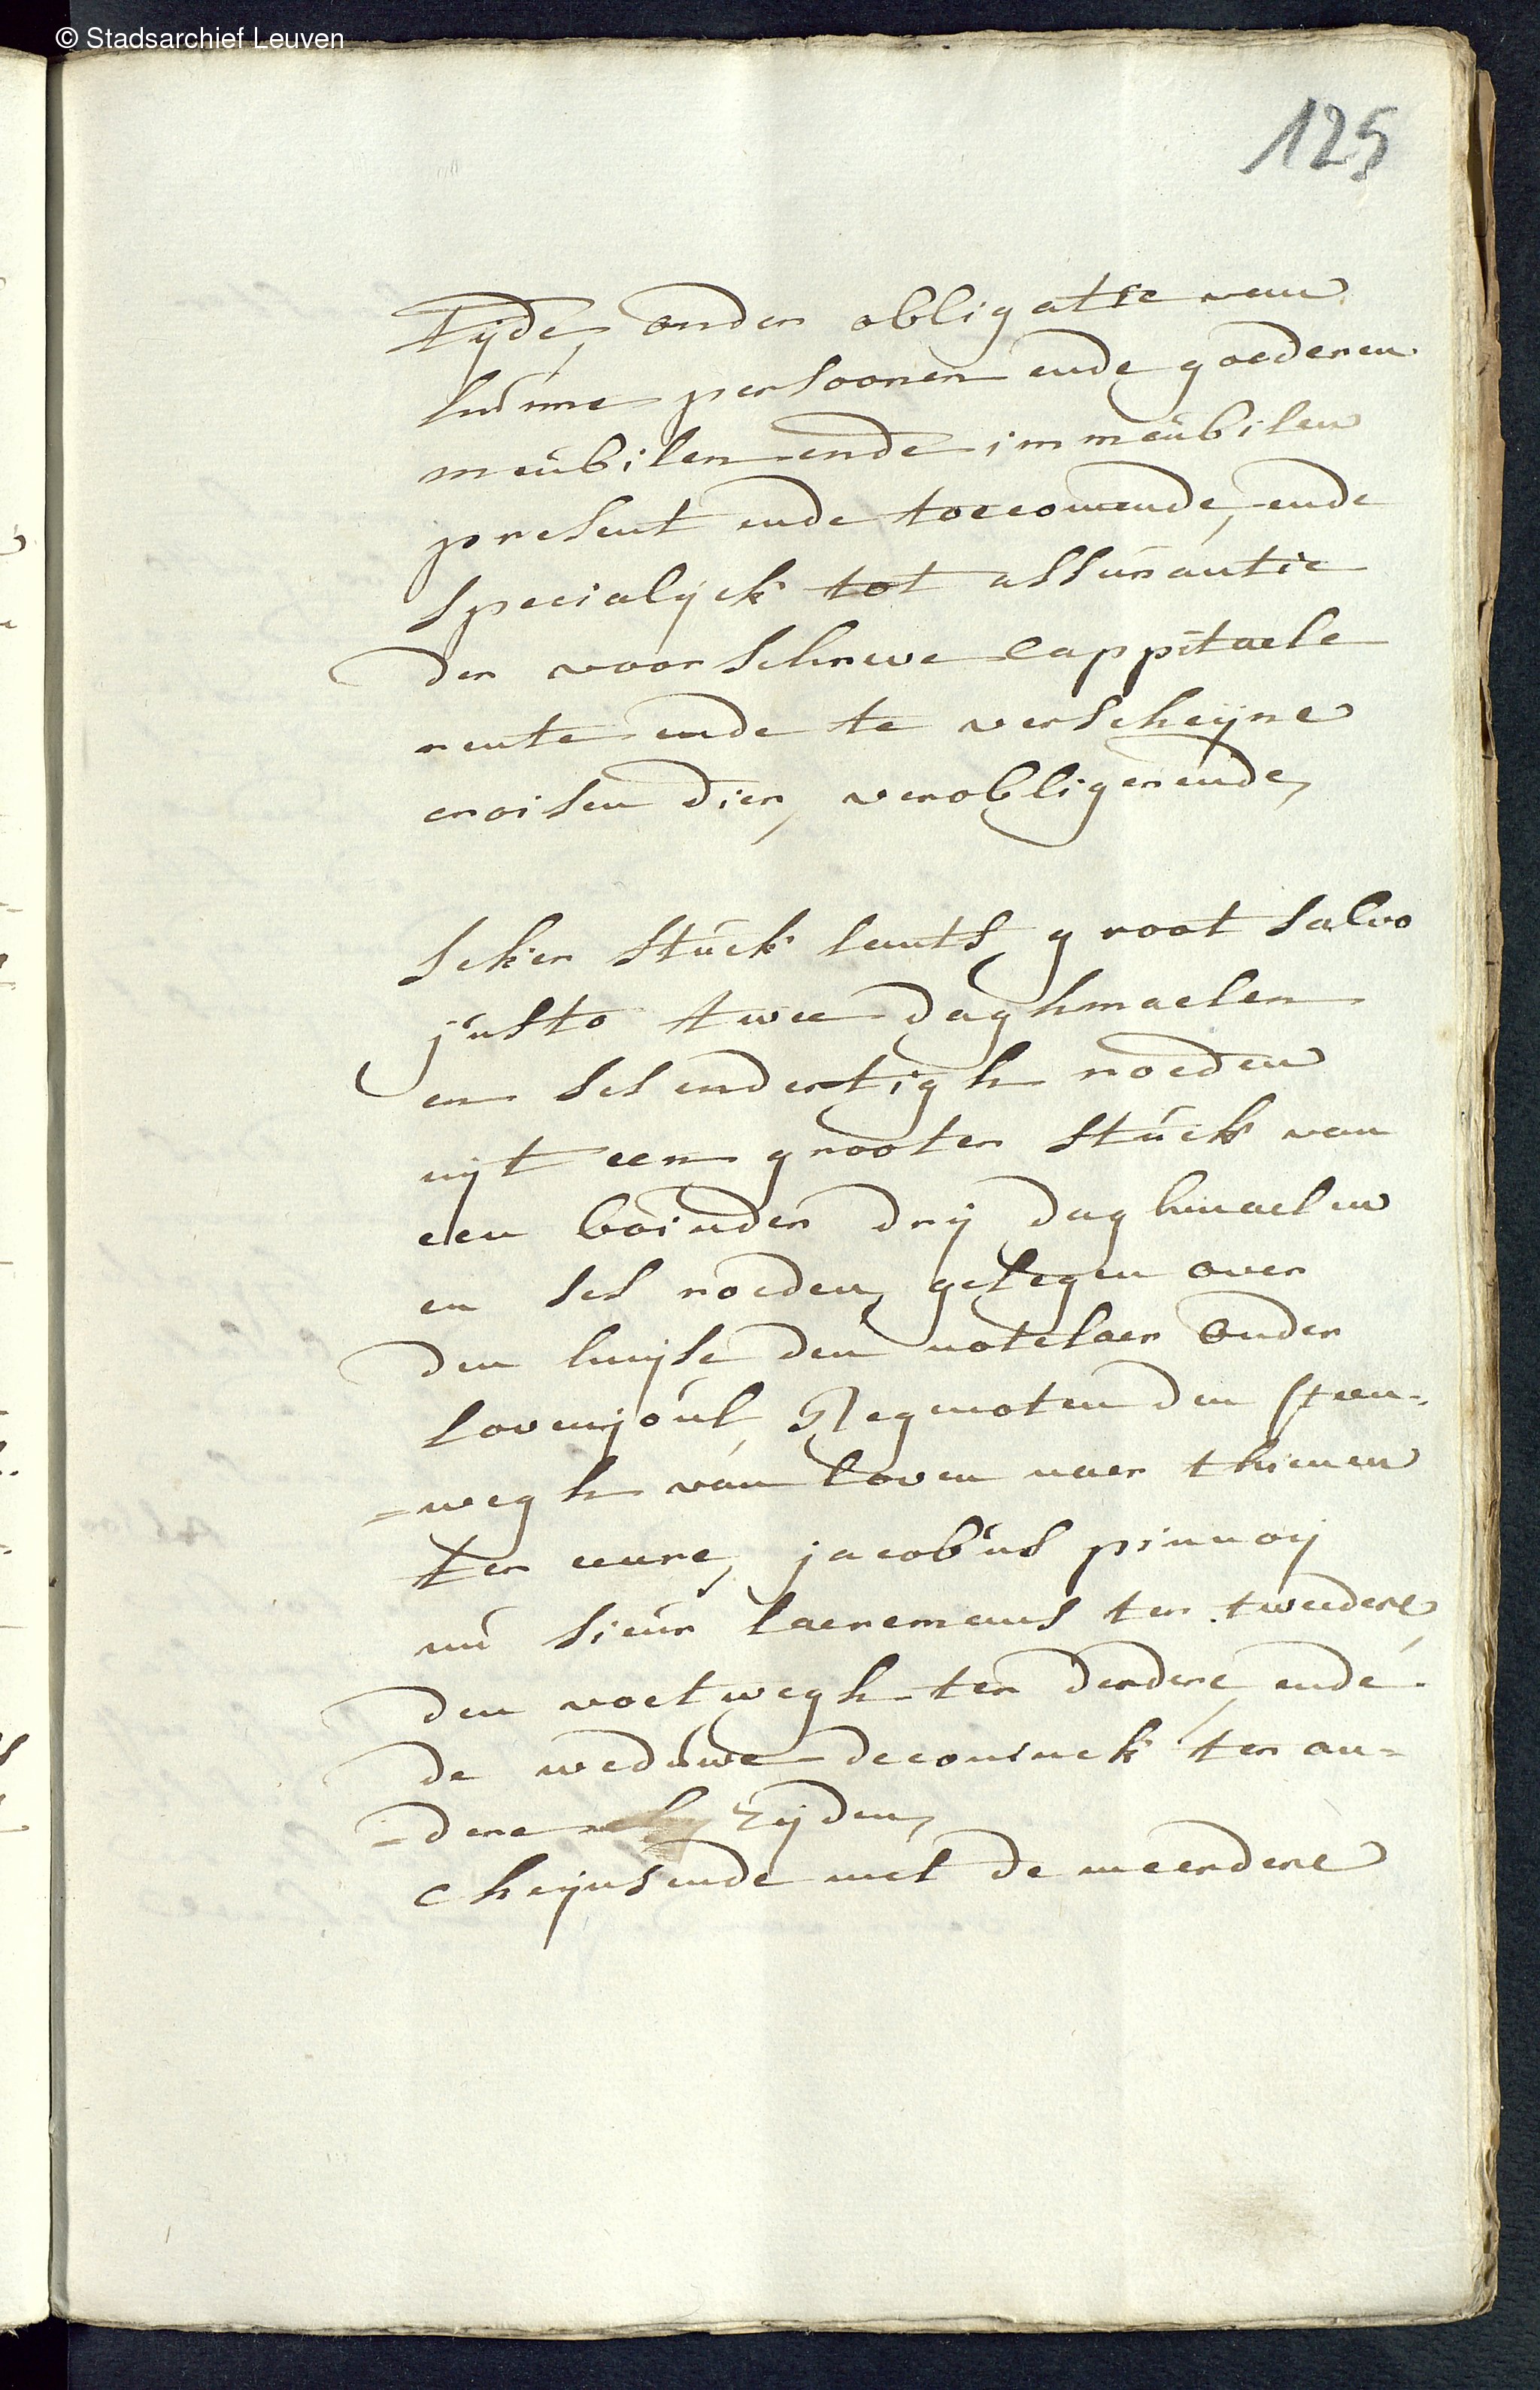 © Stadsarchief Leuven
125
tyde, onder obligatie van
hunne persoonen ende goederen
meubilen ende immeubilen
present ende toecomende, ende
specialijck tot assurantie
der voorschreve cappitaele
rente ende te verscheijne
croisen dier, verobligerende,
seker stuck lants, groot salvo
justo twee daghmaelen
en ses endertigh roeden
uijt een grooter stuck van
een boinder drij daghmaelen
en ses roeden, gelegen over
den huijse den notelaer onder
Lovenjoul, Regenoten den steen-
=wegh van Loven naer thienen
ter eenre, jacobus pinnoij
nu sieur Laeremans ter tweedere,
den voetwegh ter derdere, ende
de weduwe deconinck ter an=
=dere zijden,
cheijnsende met de meerdere